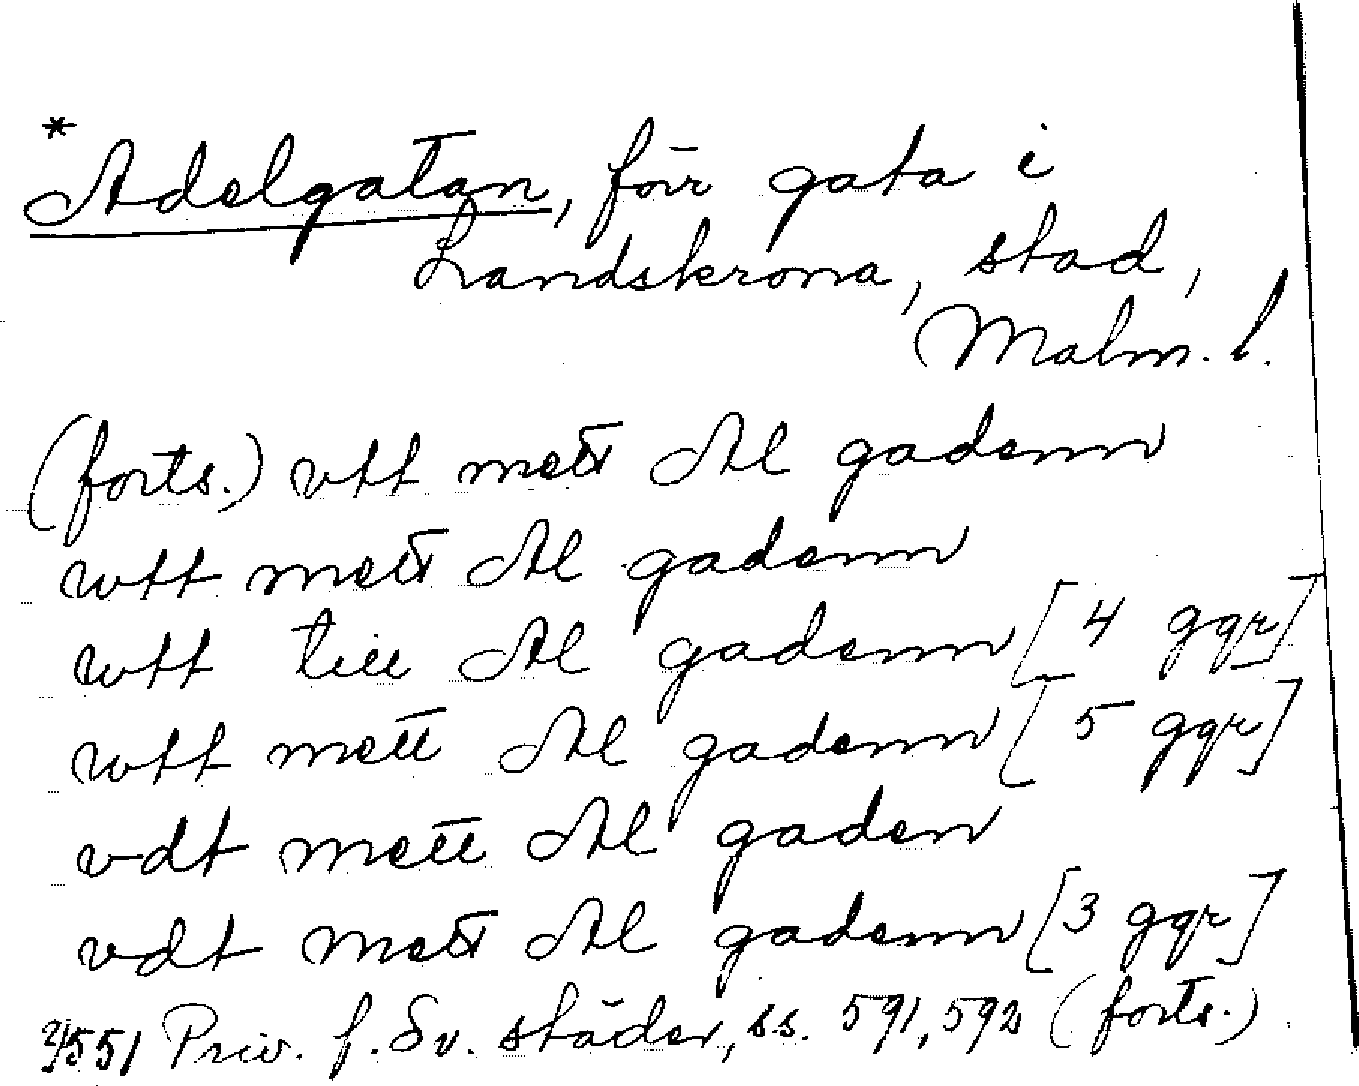 *
Adelgatan, förr gata i
Landskrona, stad,
Malm. l.
(forts.) vtt mett Al gadenn
wtt mett Al gadenn
wtt till Al gadenn [4 ggr]
wtt mett Al gadenn [5 ggr]
vdt mett Al gaden
vdt mett Al gadenn [3 ggr]
1551 Priv. f. Sv. städer, ss. 591, 592 (forts.)